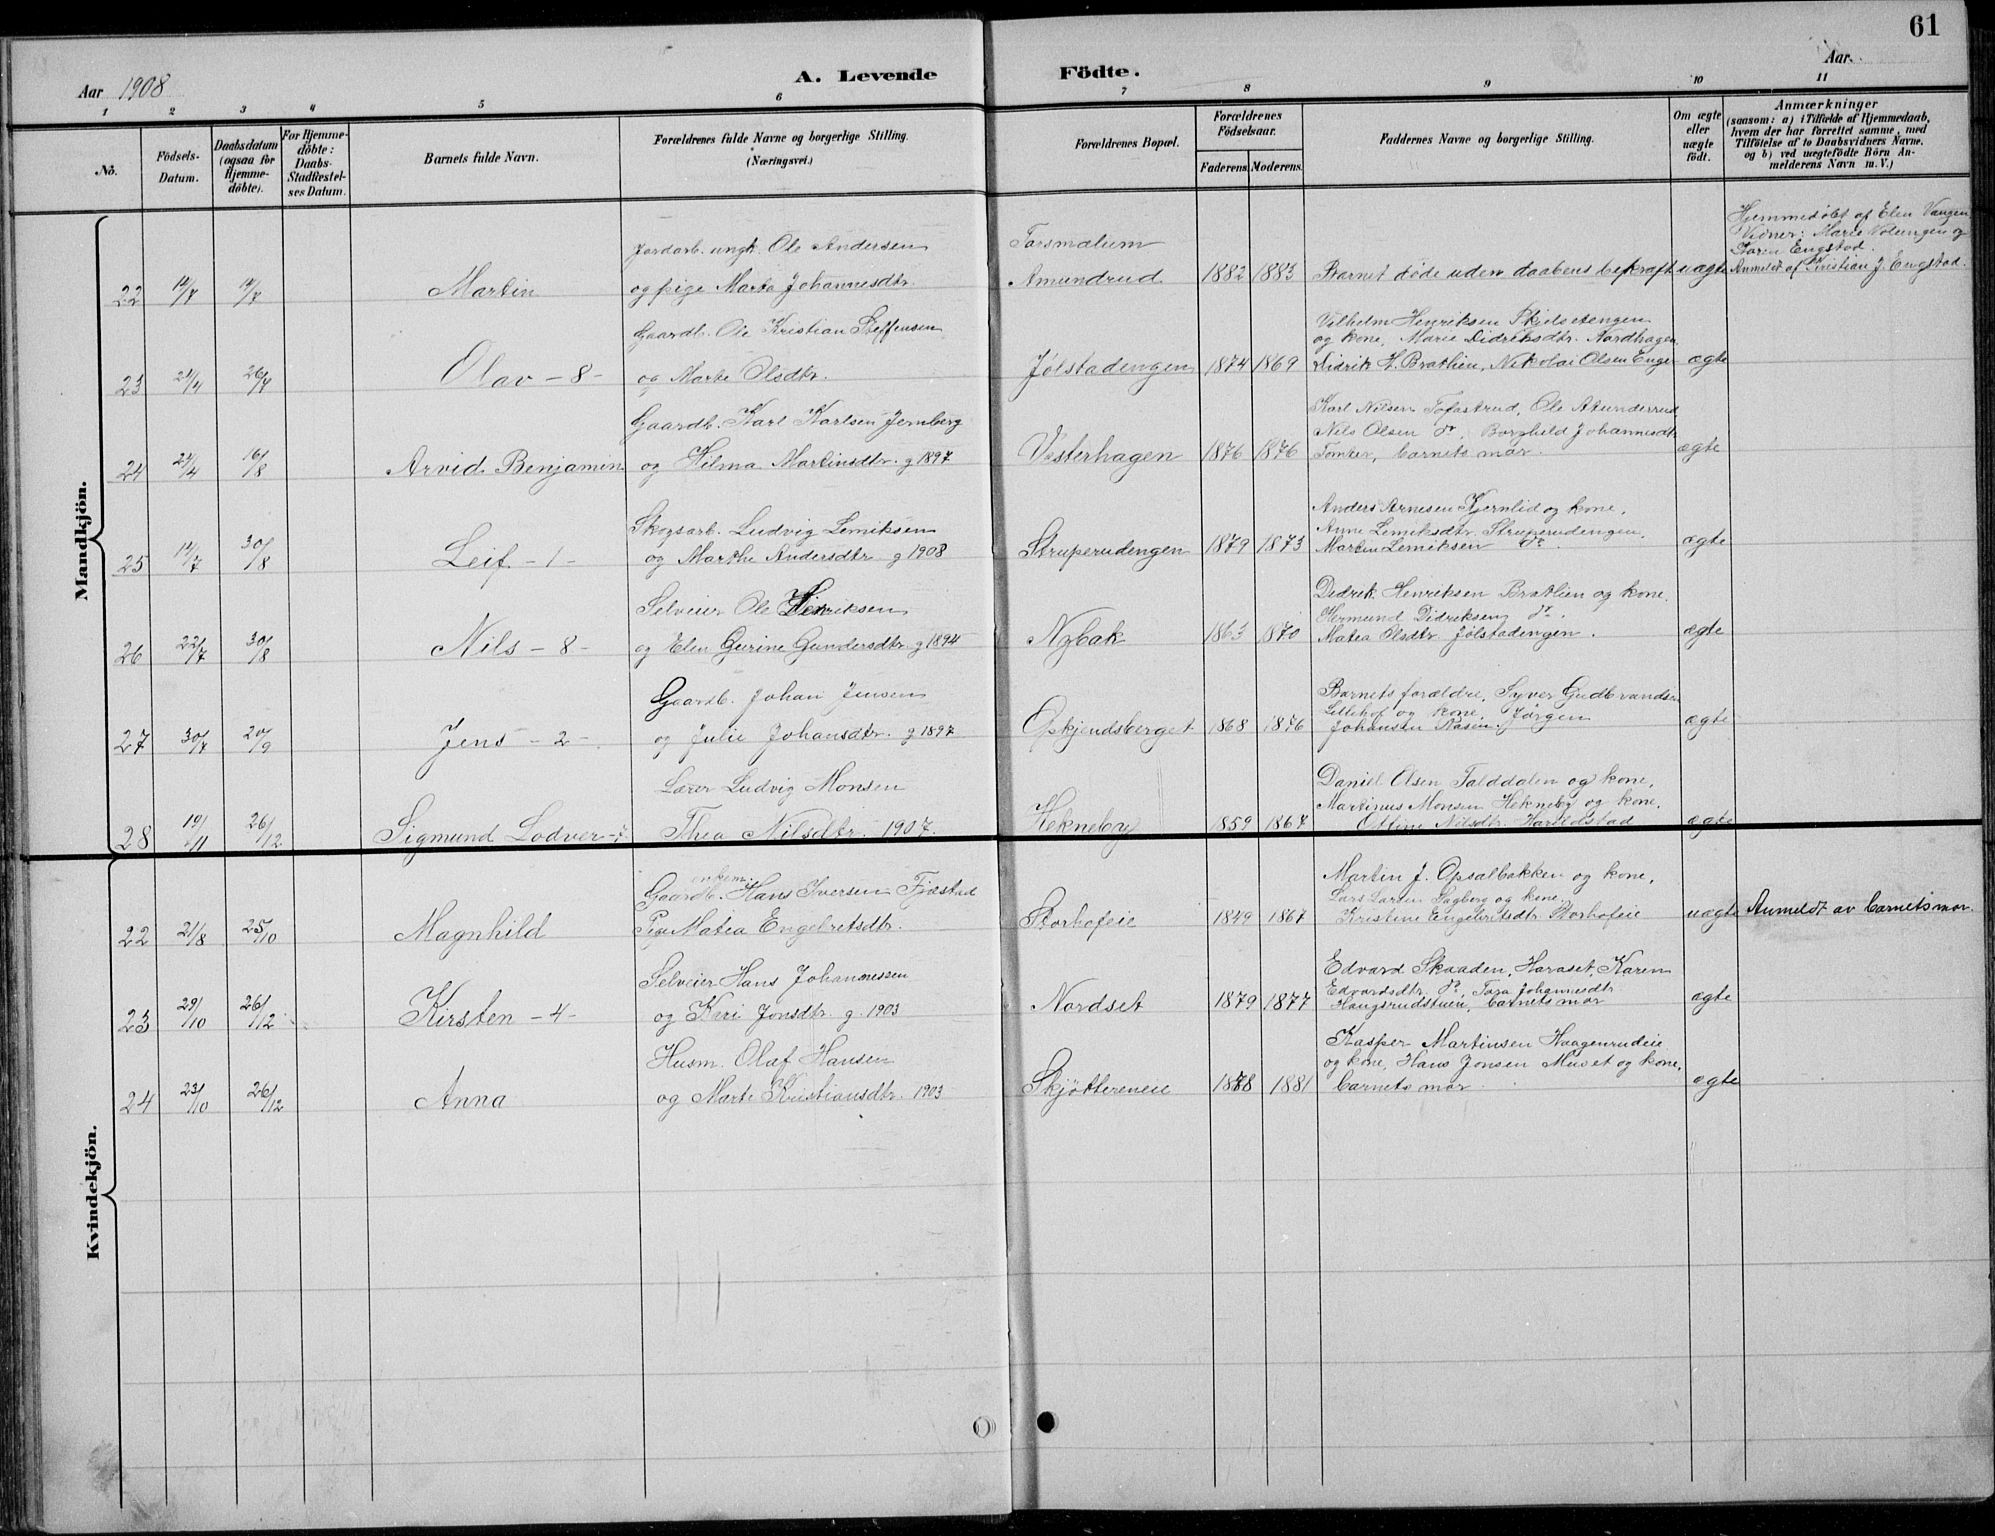 61
Aar 1908
A. Levende Födte.
Aar
1 2 3 4 5 6 7 8 9 10 11
No.
Födsels-Datum.
Daabsdatum (ogsaa for Hjemme-döbte).
For Hjemme-döbte: Daabs-Stadfæstel-ses Datum.
Barnets fulde Navn.
Forældrenes fulde Navne og borgerlige Stilling.
(Næringsvei.)
Forældrenes Bopæl.
Forældrenes Födselsaar.
Faderens. Moderens.
Faddernes Navne og borgerlige Stilling.
Om ægte eller uægte födt.
Anmærkninger
(saasom: a) i Tilfælde af Hjemmedaab,
hvem der har forrettet samme, med
Tilföielse af to Daabsvidners Navne,
og b) ved uægtefödte Börn An-
melderens Navn m. V.)
Mandkjön.
Jordarb. ungk. Ole Andersen
22 Martin og pige Marta Johannesdtr. Amundrud 1882 1883 Barnet døde uden daabens bekræft uægte
Hjemmedøbt af Elen Vangen
Vidner: Marie Volungen og
Karen Engstad.
Anmeldt af Kristian J. Engstad.
Gaardb. Ole Kristian Steffensen
23 26/7 Olav - 8 - og Marte Olsdtr. Jølstadengen 1874 1869 ægte
Vilhelm Henriksen Skjelsetengen
og kone, Marie Didriksdtr. Nordhagen,
Didrik H. Brathien, Nikolai Olsen Enger
Gaardb. Karl Karlsen Jernberg
24 24/4 16/8 Arvid Benjamin og Hilma Martinsdtr. g 1897 Vesterhagen 1876 1876 ægte
Karl Nilsen Tofastrud, Ole
Nils Olsen do, Borghild Johannesdtr
Tomter, barnets mor.
Skogsarb. Ludvig Lemiksen
25 14/7 30/8 Leif - 1 - og Marthe Andersdtr g 1908 Struperudengen 1879 1873 ægte
Anders Arnesen Kjernlid og kone,
Anne Lemiksdtr. Struperudengen,
Martin Lemiksen do.
Selveier Ole Henriksen
26 22/7 30/8 Nils - 8 - og Elen Gurine Gundersdtr. g 1894 Nybak 1863 1870 ægte
Didrik Henriksen Brathien og kone,
Hermund Didriksen do.
Matea Olsdtr. Jølstadengen.
Gaardb. Johan Jensen
27 30/7 20/9 Jens - 2 - og Julie Johansdtr. g 1897 Opkjendsberget 1868 1876 ægte
Barnets forældre, Syver Gudbrandsen
Lillehof og kone, Jørgen
Johansen Aasen.
Lærer Ludvig Monsen
28 19/11 26/12 Sigmund Lodver - 7 Thea Nilsdtr. 1907. Hekneby 1859 1867 ægte
Daniel Olsen Talddalen og kone,
Martinus Monsen Hekneby og kone,
Ottine Nilsdtr. Haraldstad
Kvindekjön.
enkem.
Gaardb. Hans Iversen Fjæstad
22 21/8 25/10 Magnhild Pige Matea Engebretsdtr. Storhofeie 1849 1867 uægte Anmeldt av barnets mor.
Martin J. Opsalbakken og kone,
Lars Larsen Sagberg og kone,
Kristine Engebretsdtr Storhofeie
Selveier Hans Johannessen
23 29/10 26/12 Kirsten - 4 - og Kari Jonsdtr. g. 1903 Nordset 1879 1877 ægte
Edvard Skaaden, Haraset, Karen
Edvardsdtr. do, Tora Johannesdtr
Haugsrudstuen, barnets mor
Husm. Olaf Hansen
24 23/10 26/12 Anna og Marte Kristiansdtr. 1903 Skjøttereneie 1878 1881 ægte
Kasper Martinsen Haagenrudeie
og kone, Hans Jonsen Muset og kone,
barnets mor